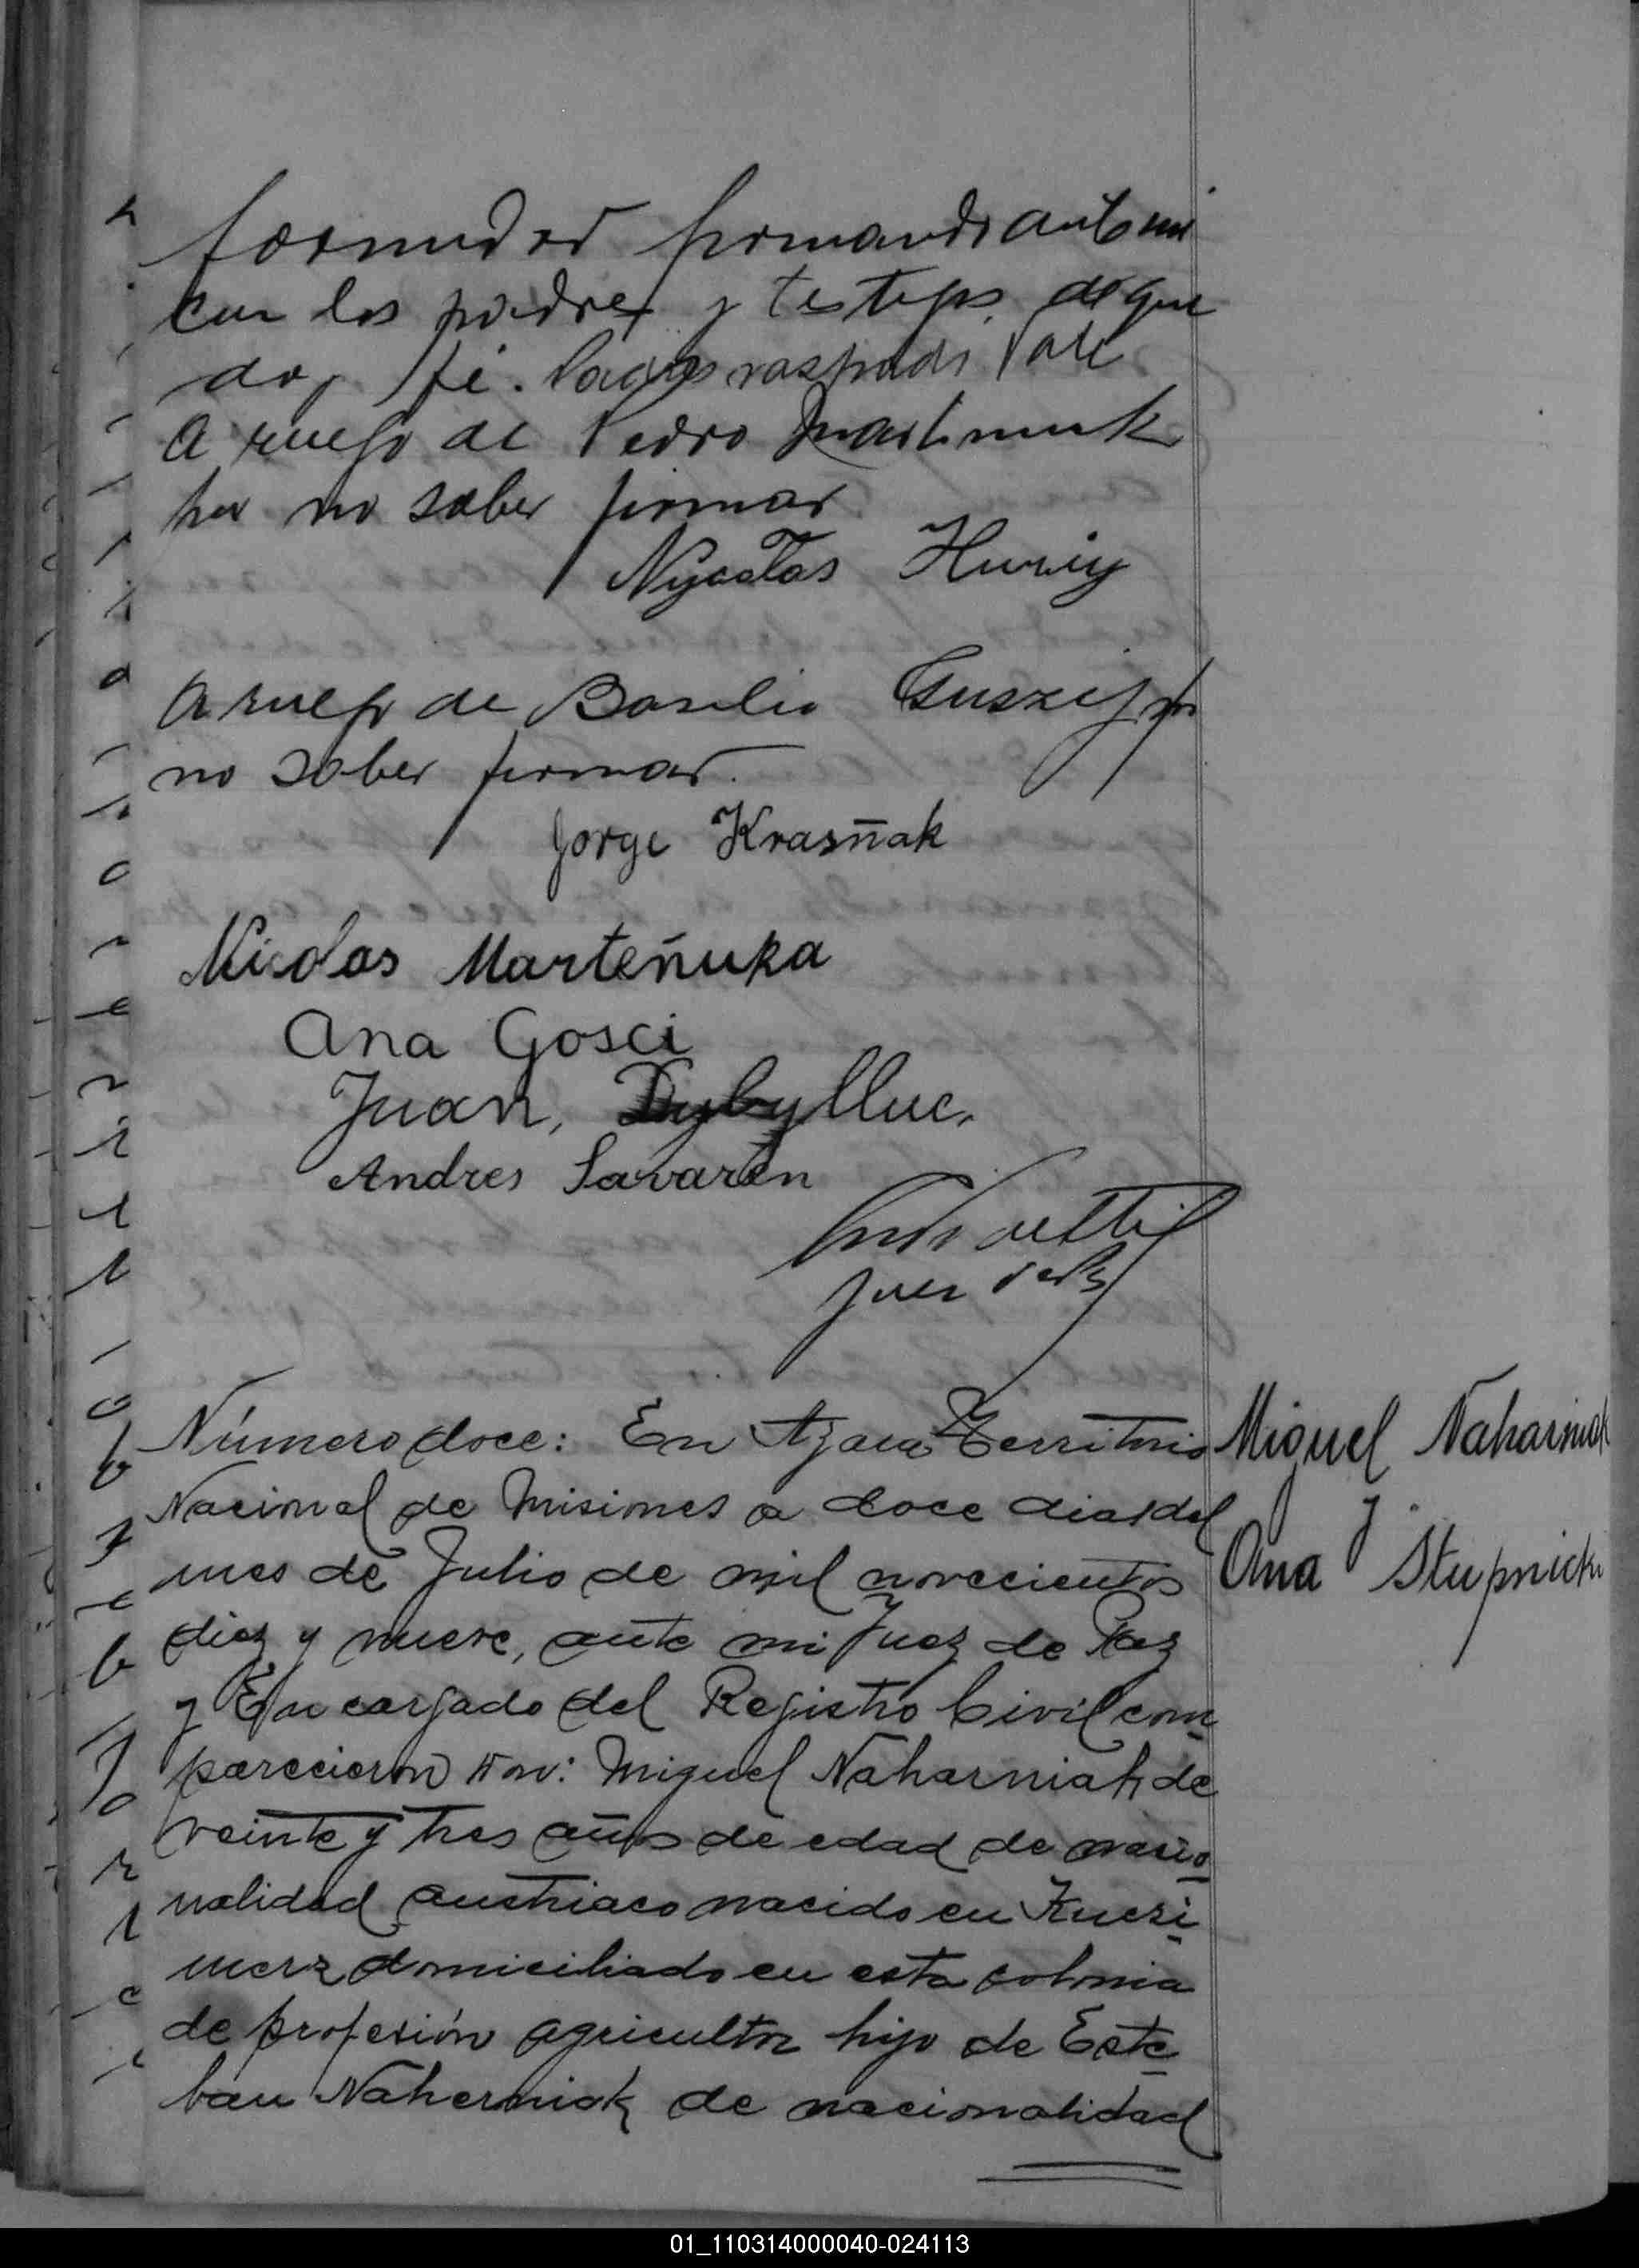 formidad firmando ante mi
con los padres y testigos de que
doy fé. raspado Vale
A ruego de Pedro Martinuk
por no saber firmar
Nycolas Huriy
A ruego de Basilio Guszij por
no saber firmar.
Jorge Krasñak
Nicolas Marteñuka
Ana Gosci
Juan, Dybylluc.
Andres Savaren
Juez de Paz
Número doce: En Azara Territorio
Nacional de Misiones a doce dias del
mes de Julio de mil novecientos
diez y nueve, ante mi Juez de Paz
y Encargado del Registro Civil com
parecieron Don: Miguel Naharniak de
veinte y tres años de edad de nacio
nalidad austriaco nacido en Kuesi
merz domiciliado en esta colonia
de profesión agricultor hijo de Este
ban Naherniak de nacionalidad
Miguel Naharniak
y
Ana Stupnicki
01_110314000040-024113